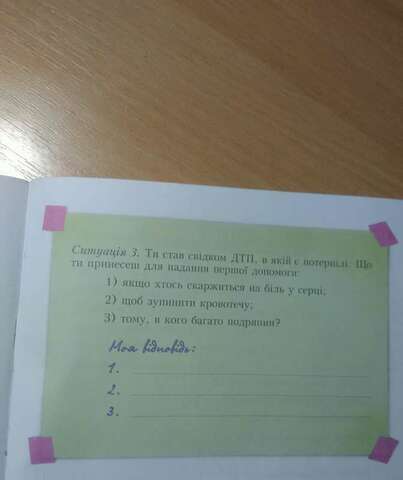 Ситуація 3. Ти став свідком ДТП, в якій є потерпілі. Що
ти принесеш для надання першої допомоги:
1) якщо хтось скаржиться на біль у серці;
2) щоб зупинити кровотечу;
3) тому, в кого багато подряпин?
Моя відповідь:
1.
2.
3.